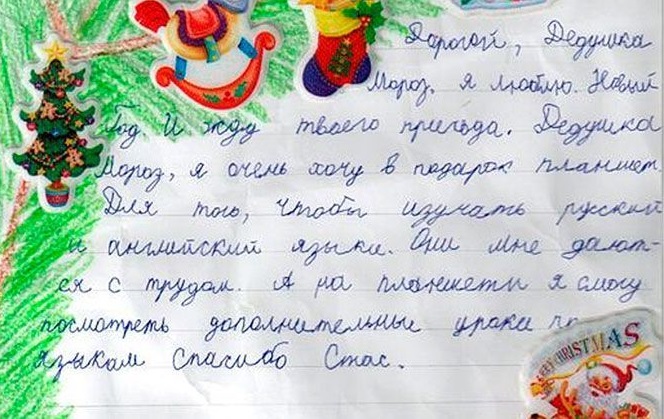 Дорогой, Дедушка
Мороз. я люблю. Новый
Год. И жду твоего приезда. Дедушка
Мороз, я очень хочу в подарок планшет.
Для того, чтобы изучать русский
и английский языки. Они мне дают-
ся с трудом. А на планшеты я смогу
посмотреть дополнительные уроки по
языкам Спасибо Стас.
MERRY CHRISTMAS